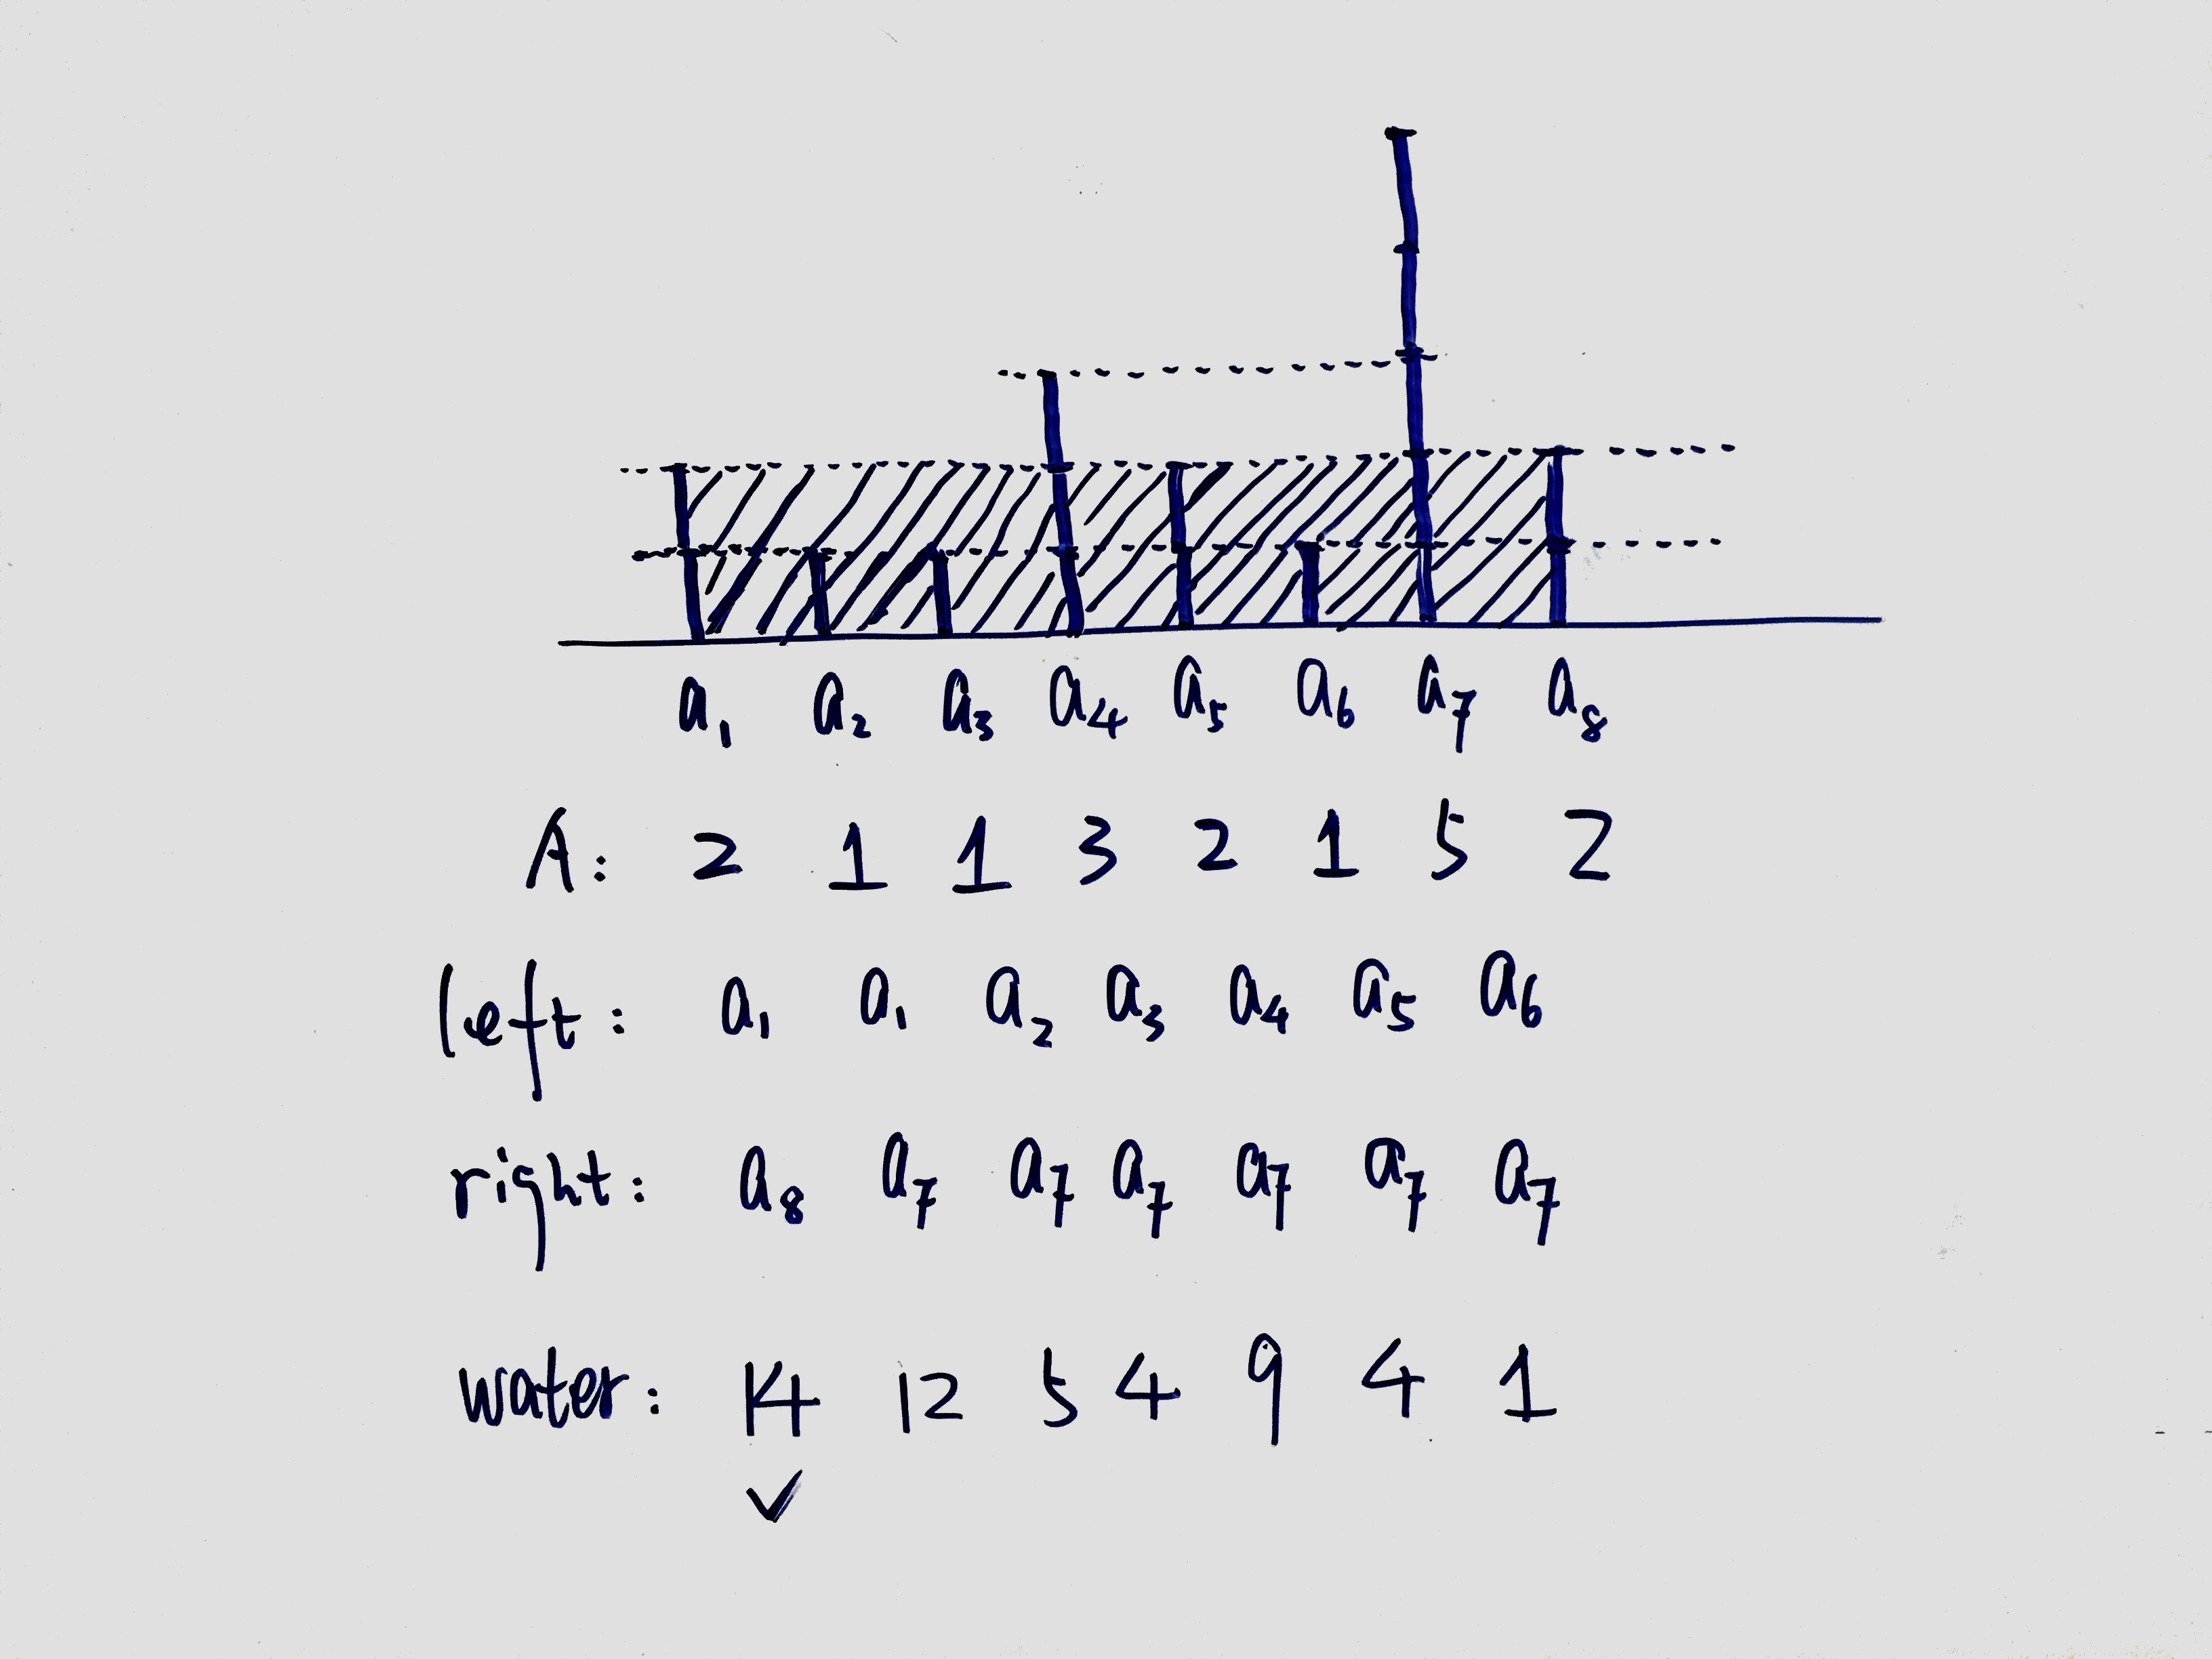 a₁ a₂ a₃ a₄ a₅ a₆ a₇ a₈
A: 2 1 1 3 2 1 5 2
left: a₁ a₁ a₂ a₃ a₄ a₅ a₆
right: a₈ a₇ a₇ a₇ a₇ a₇ a₇
water: 14 12 5 4 9 4 1
✓